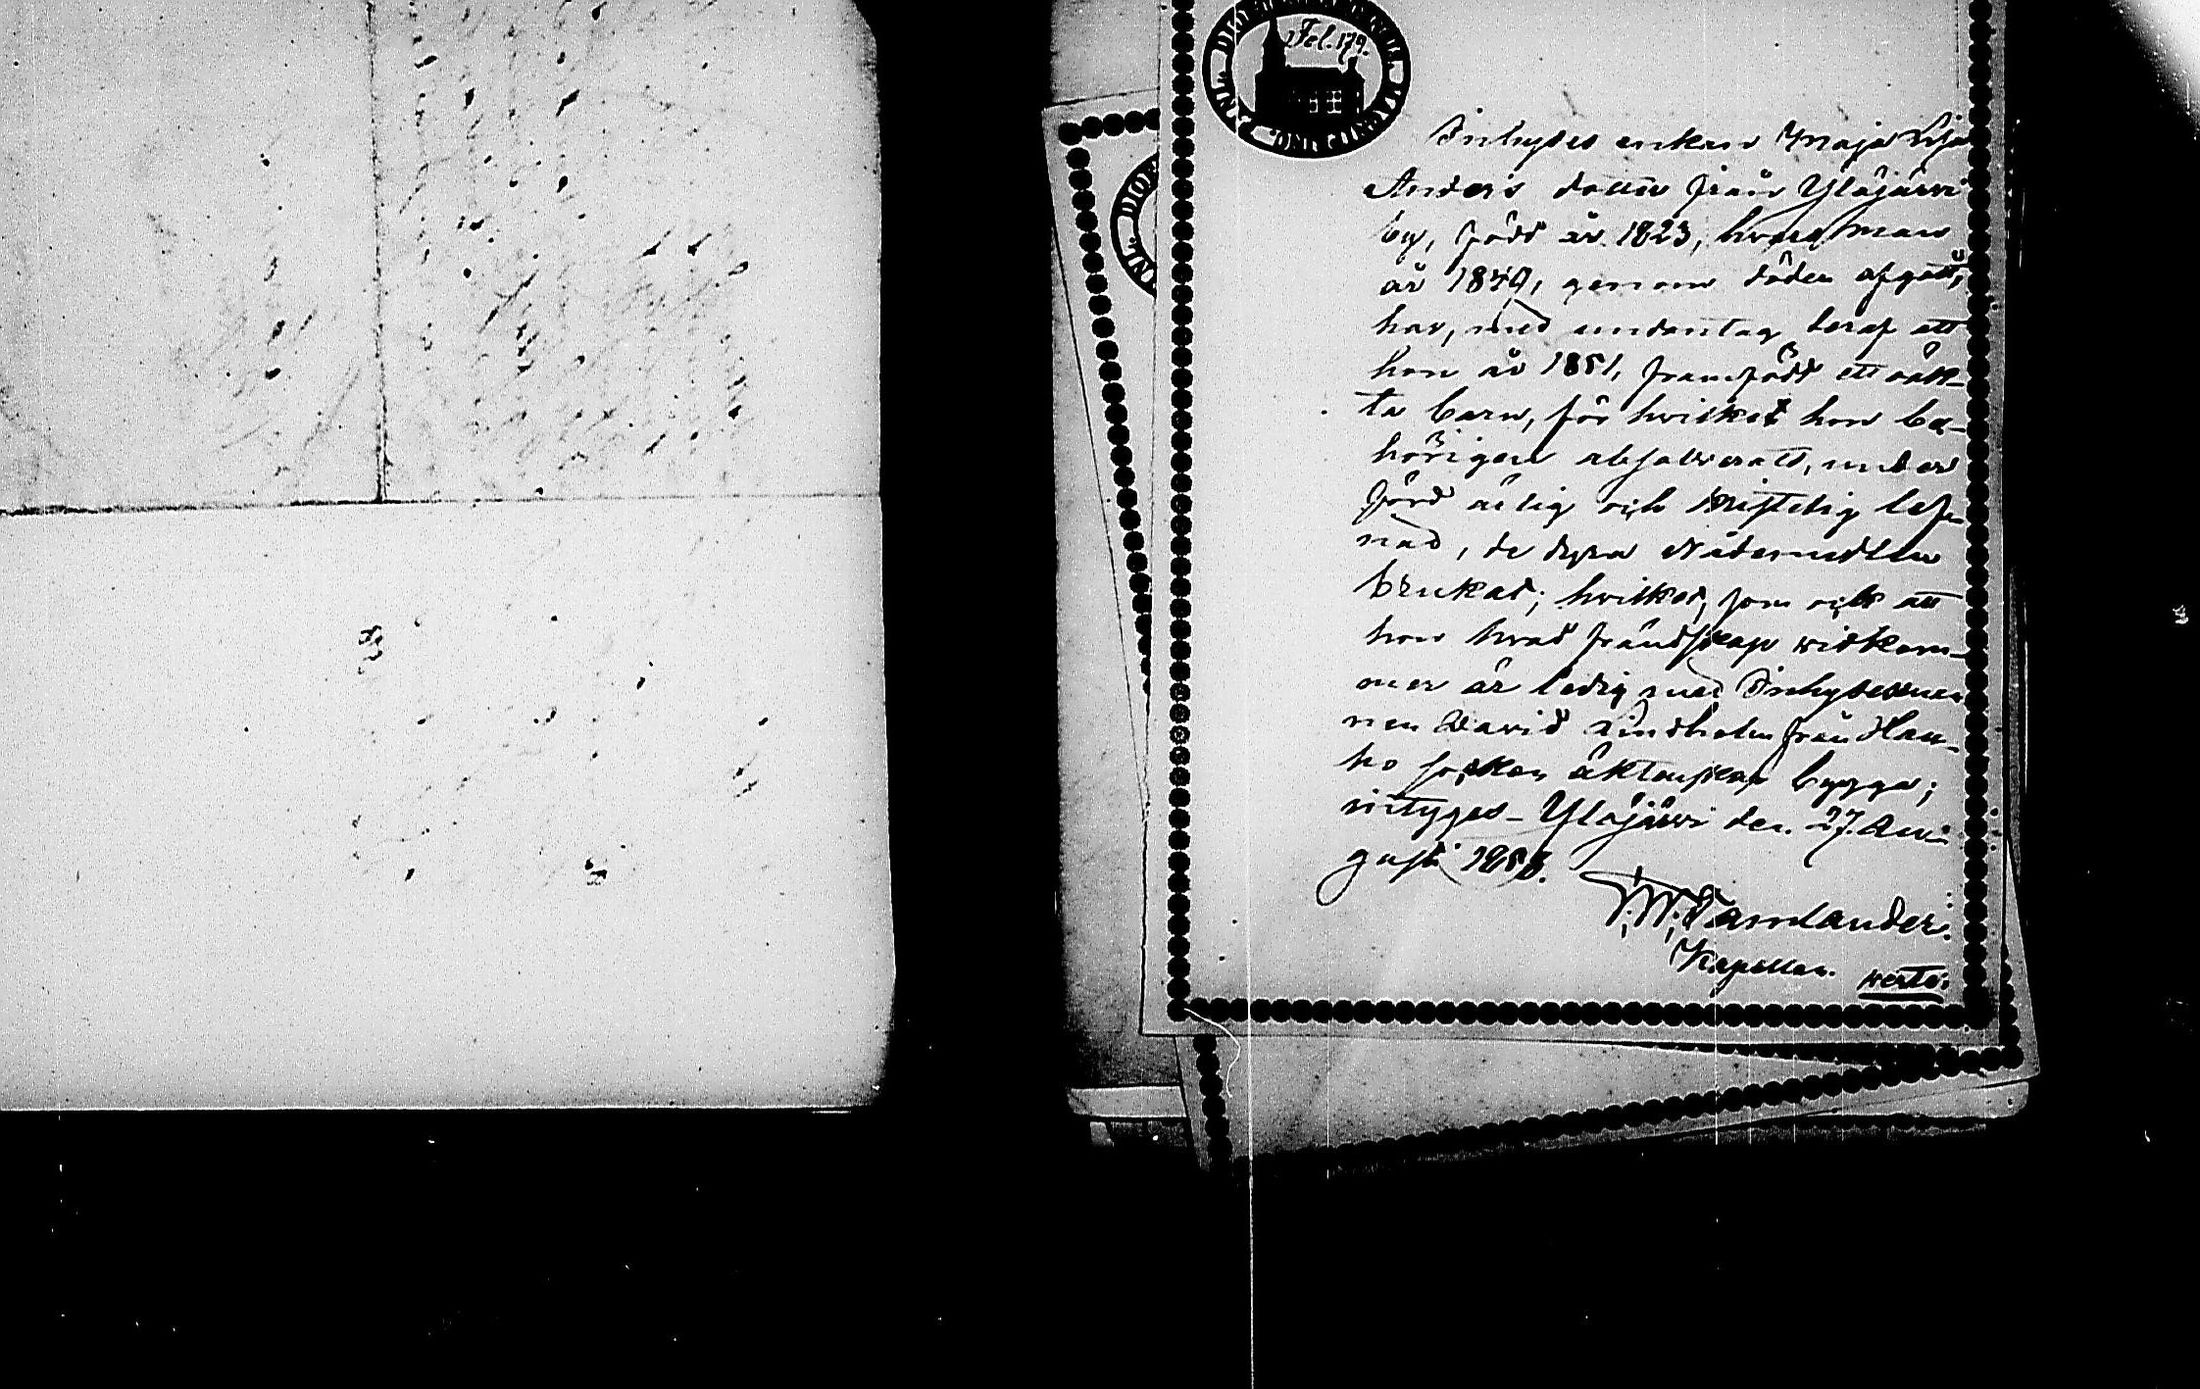 Fol. 179.
Inhyses enkan Maja Lisa
Anders dotter från Ylöjärwi
by, född år 1823, hvars man
år 1849, genom döden afgått,
har, med undantag deraf att
hon år 1851, framfödt ett oäk-
ta barn, för hvilket hon be-
hörigen absolverats, under
förd ärlig och kristelig lef-
nad, de dyra Nådemedlen
brukat; hvilket, som ock att
hon hvad frändskap widkom-
mer är ledig med Inhysesman-
nen David Lindholm från Hau-
ho socken äktenskap bygga;
intygas – Ylöjärwi den 27. Au-
gusti 1858.
Tamlander.
Kapellan. verte: